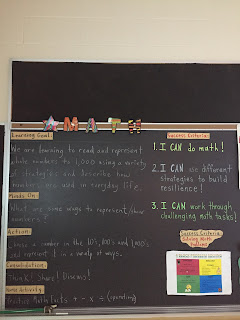 MATH
Learning Goal:
We are learning to read and represent
whole numbers to 1,000 using a variety
of strategies and describe how
numbers are used in everyday life.
Minds On:
What are some ways to represent/show
numbers?
Action:
Choose a number in the 10's, 100's and 1,000's
and represent it in a variety of ways.
Consolidation:
Think! Share! Discuss!
Home Activity:
Practice Math Facts + - x ÷
Success Criteria:
1. I CAN do math!
2. I CAN use different
strategies to build
resilience!
3. I CAN work through
challenging math tasks!
Success Criteria:
Solving Math
Problems